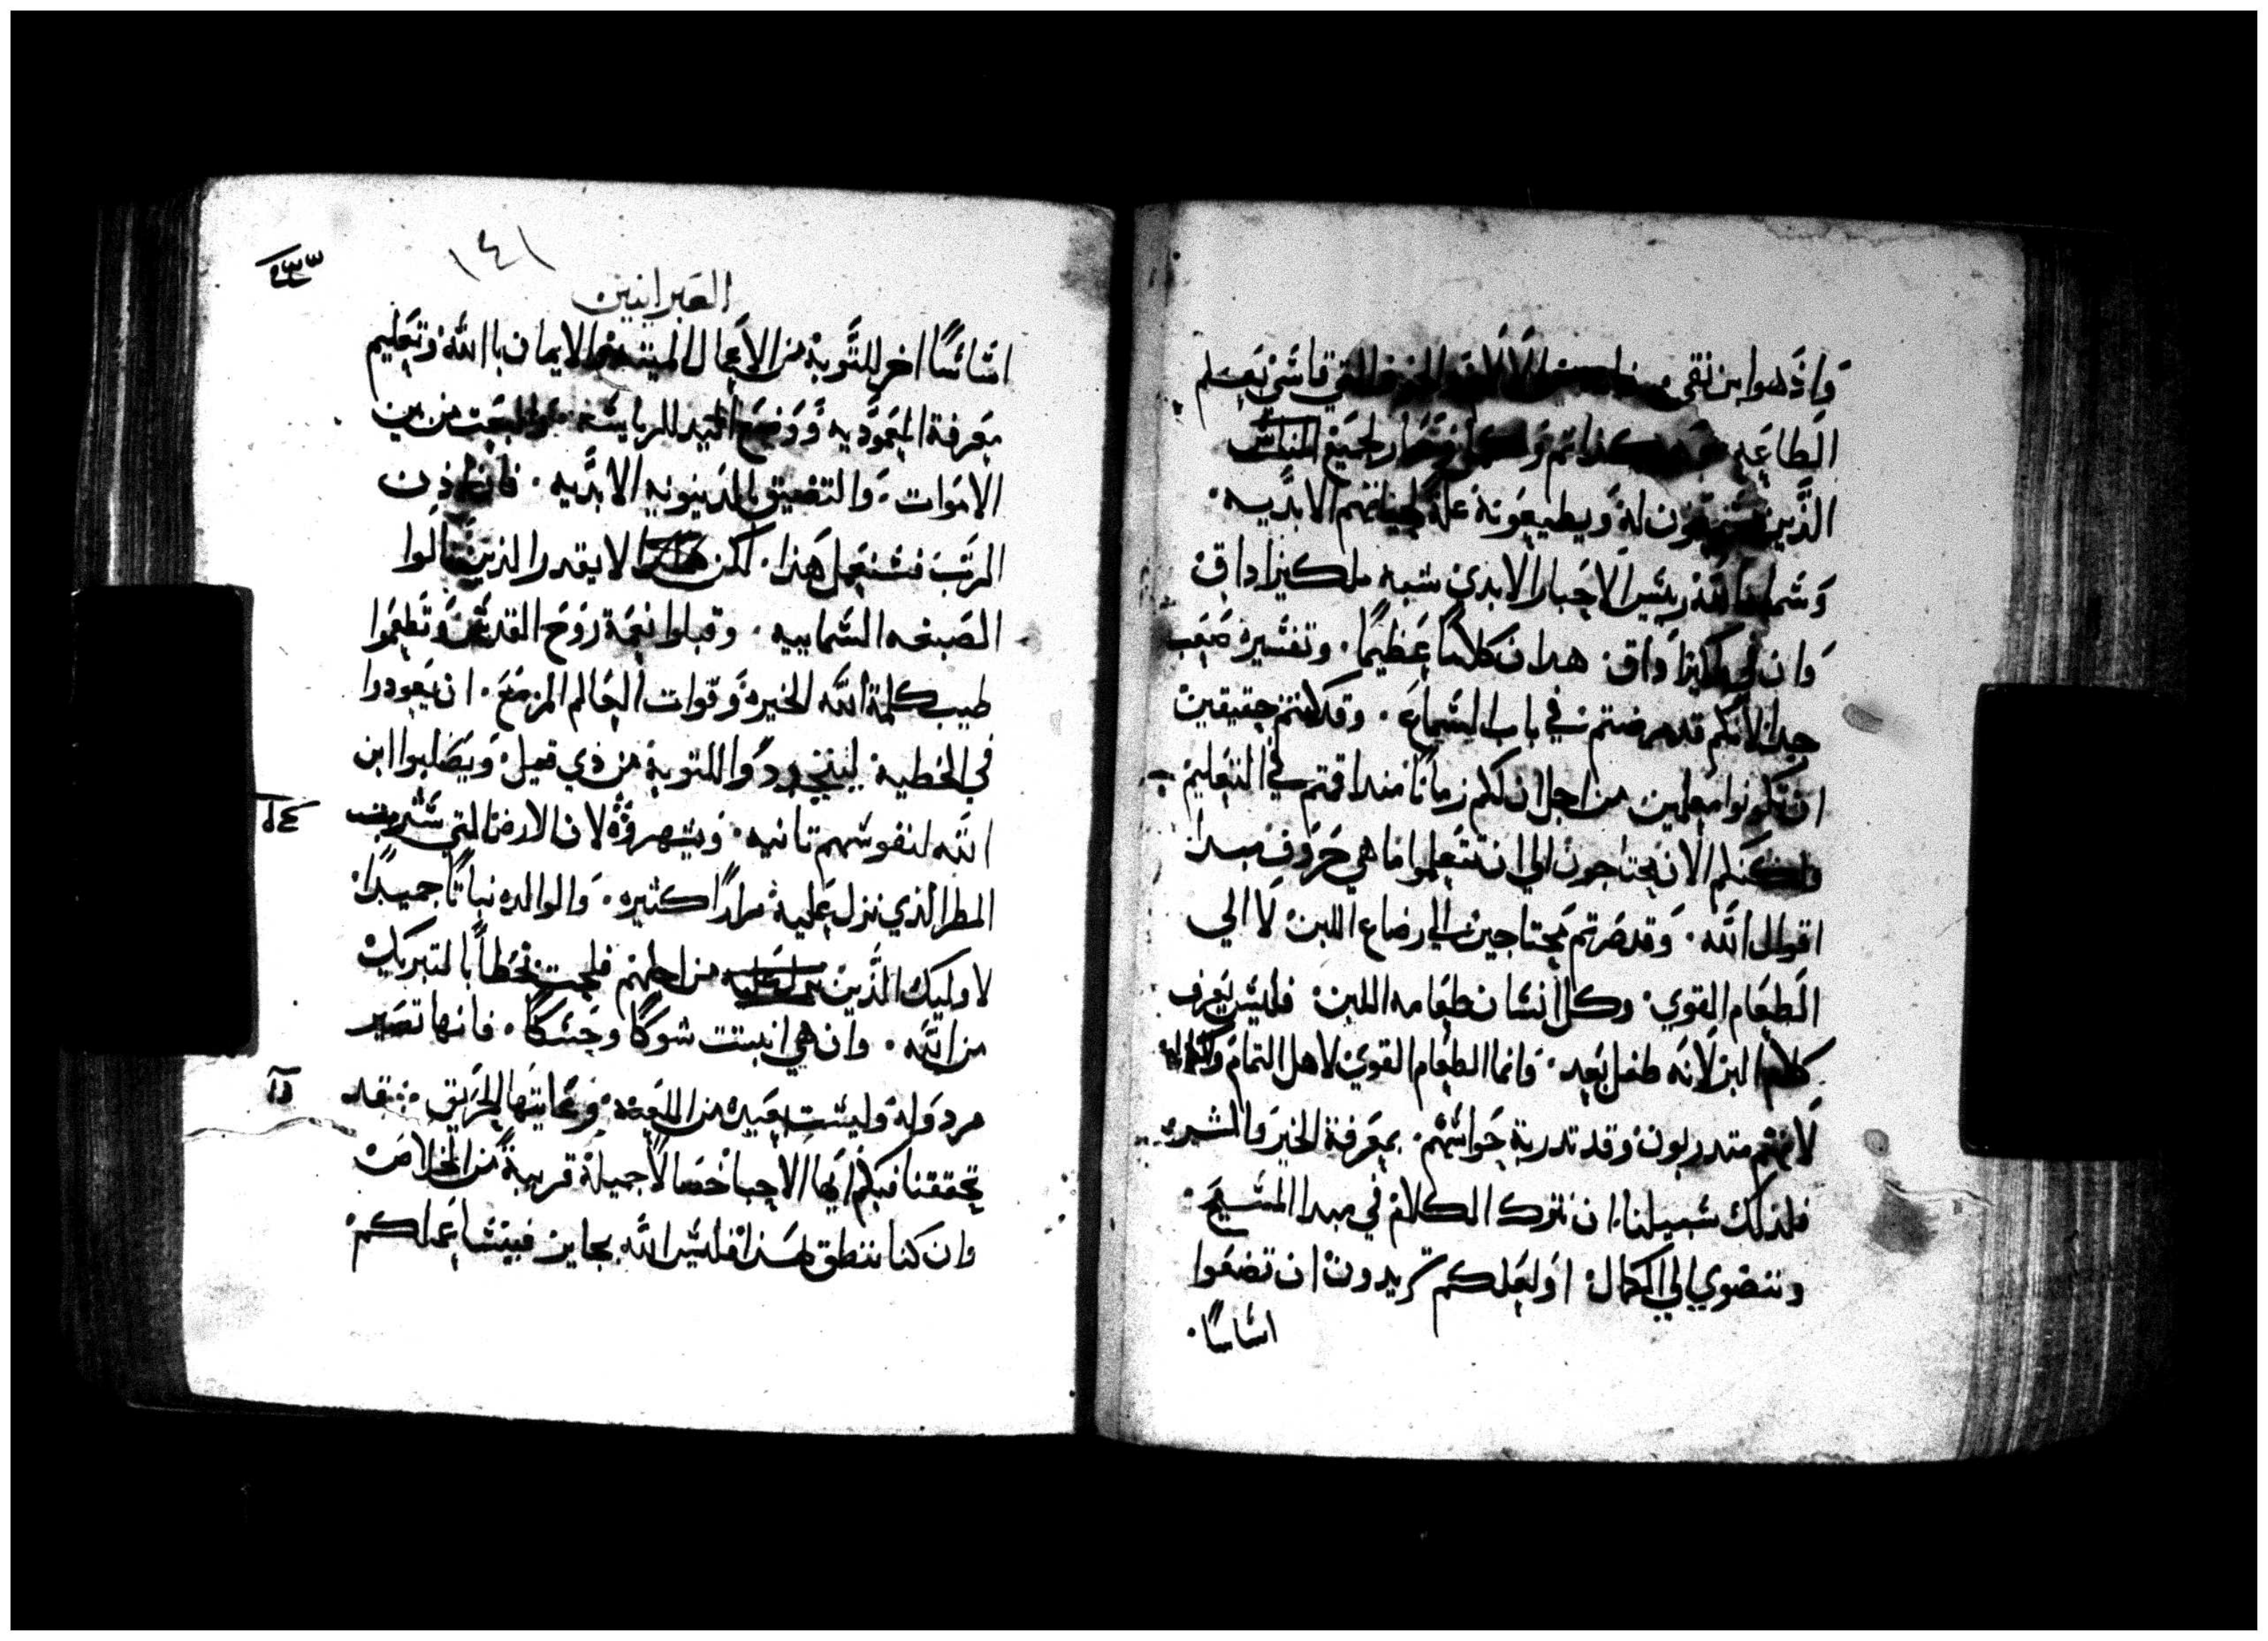 وَاذ هوا بن نقي من الالام والحزن التي قاسَي تعلم
الطاعه كذا تم وصار لجميع الناس
الذين يسمعون له ويطيعونه علة لحياتهم الابديه.
وسماه الله ريس الاحبار الابدي شبه ملكيزاداق
وان في ملكيزاداق. هدا ن كلامًا عظيمًا. وتفسيره صعب
جدا لانكم قد مرضتم في باب السماع. وقد كنتم حقيقين
ان تكونوا معلمين من اجل ان لكم زمانًا مند اقمتم في التعليم.
ولكنكم الان تحتاجون الي ان تتعلموا ما هي حروف مبدا
اقوال الله. وقد صرتم محتاجين الي رضاع اللبن لا الي
الطعام القوي. وكل انسان طعامه اللبن. فليس يعرف
كلام البر لانه طفل بعد. وانما الطعام القوي لاهل التمام
لانهم متدربون وقد تدربة حواسهم. بمعرفة الخير والشر
فلذلك سبيلنا ان نترك الكلام في مبدا المسيح.
وننضوي الي الكمال. او لعلكم تريدون ان تضعوا
اساسًا.
١٤١
العبرانيين
اساسًا اخر للتوبة من الاعمال الميته والايمان باالله وتعليم
معرفة المعموديه ووضع اليد للرياسة والبعت من بين
الاموات. والتضيق بالدينونيه الابديه. فان اذن
المرتب فسنعمل هذا. لكن لا يقدر الذين نالوا
الصبغه السماييه. وقبلوا نعمة روح القدس وتطعموا
طيب كلمة الله الخيره وقوات العالم المزمع. ان يعودوا
في الخطيه. ليتجددوا للتوبة من ذي قبل ويصلبوا ابن
الله لنفوسهم تانيه. ويشهروه لان الارض التي شربت
المطر الذي نزل عليه مرارًا كثيره. والوالده نباتًا جميدًا.
لاوليك الذين من اجلهم فلحت تحظا بالتبريك
من الله. وان هي انبتت شوكًا وحسكًا. فانها تصير
مردوله وليست ببعيده من اللعنه وعاقبتها للحريق ۞ قد
تحققنا فيكم ايها الاحبا خصالا جميلة قريبة من الخلاص
وان كنا ننطق هكذا فليس الله بجاير فينسا عملكم